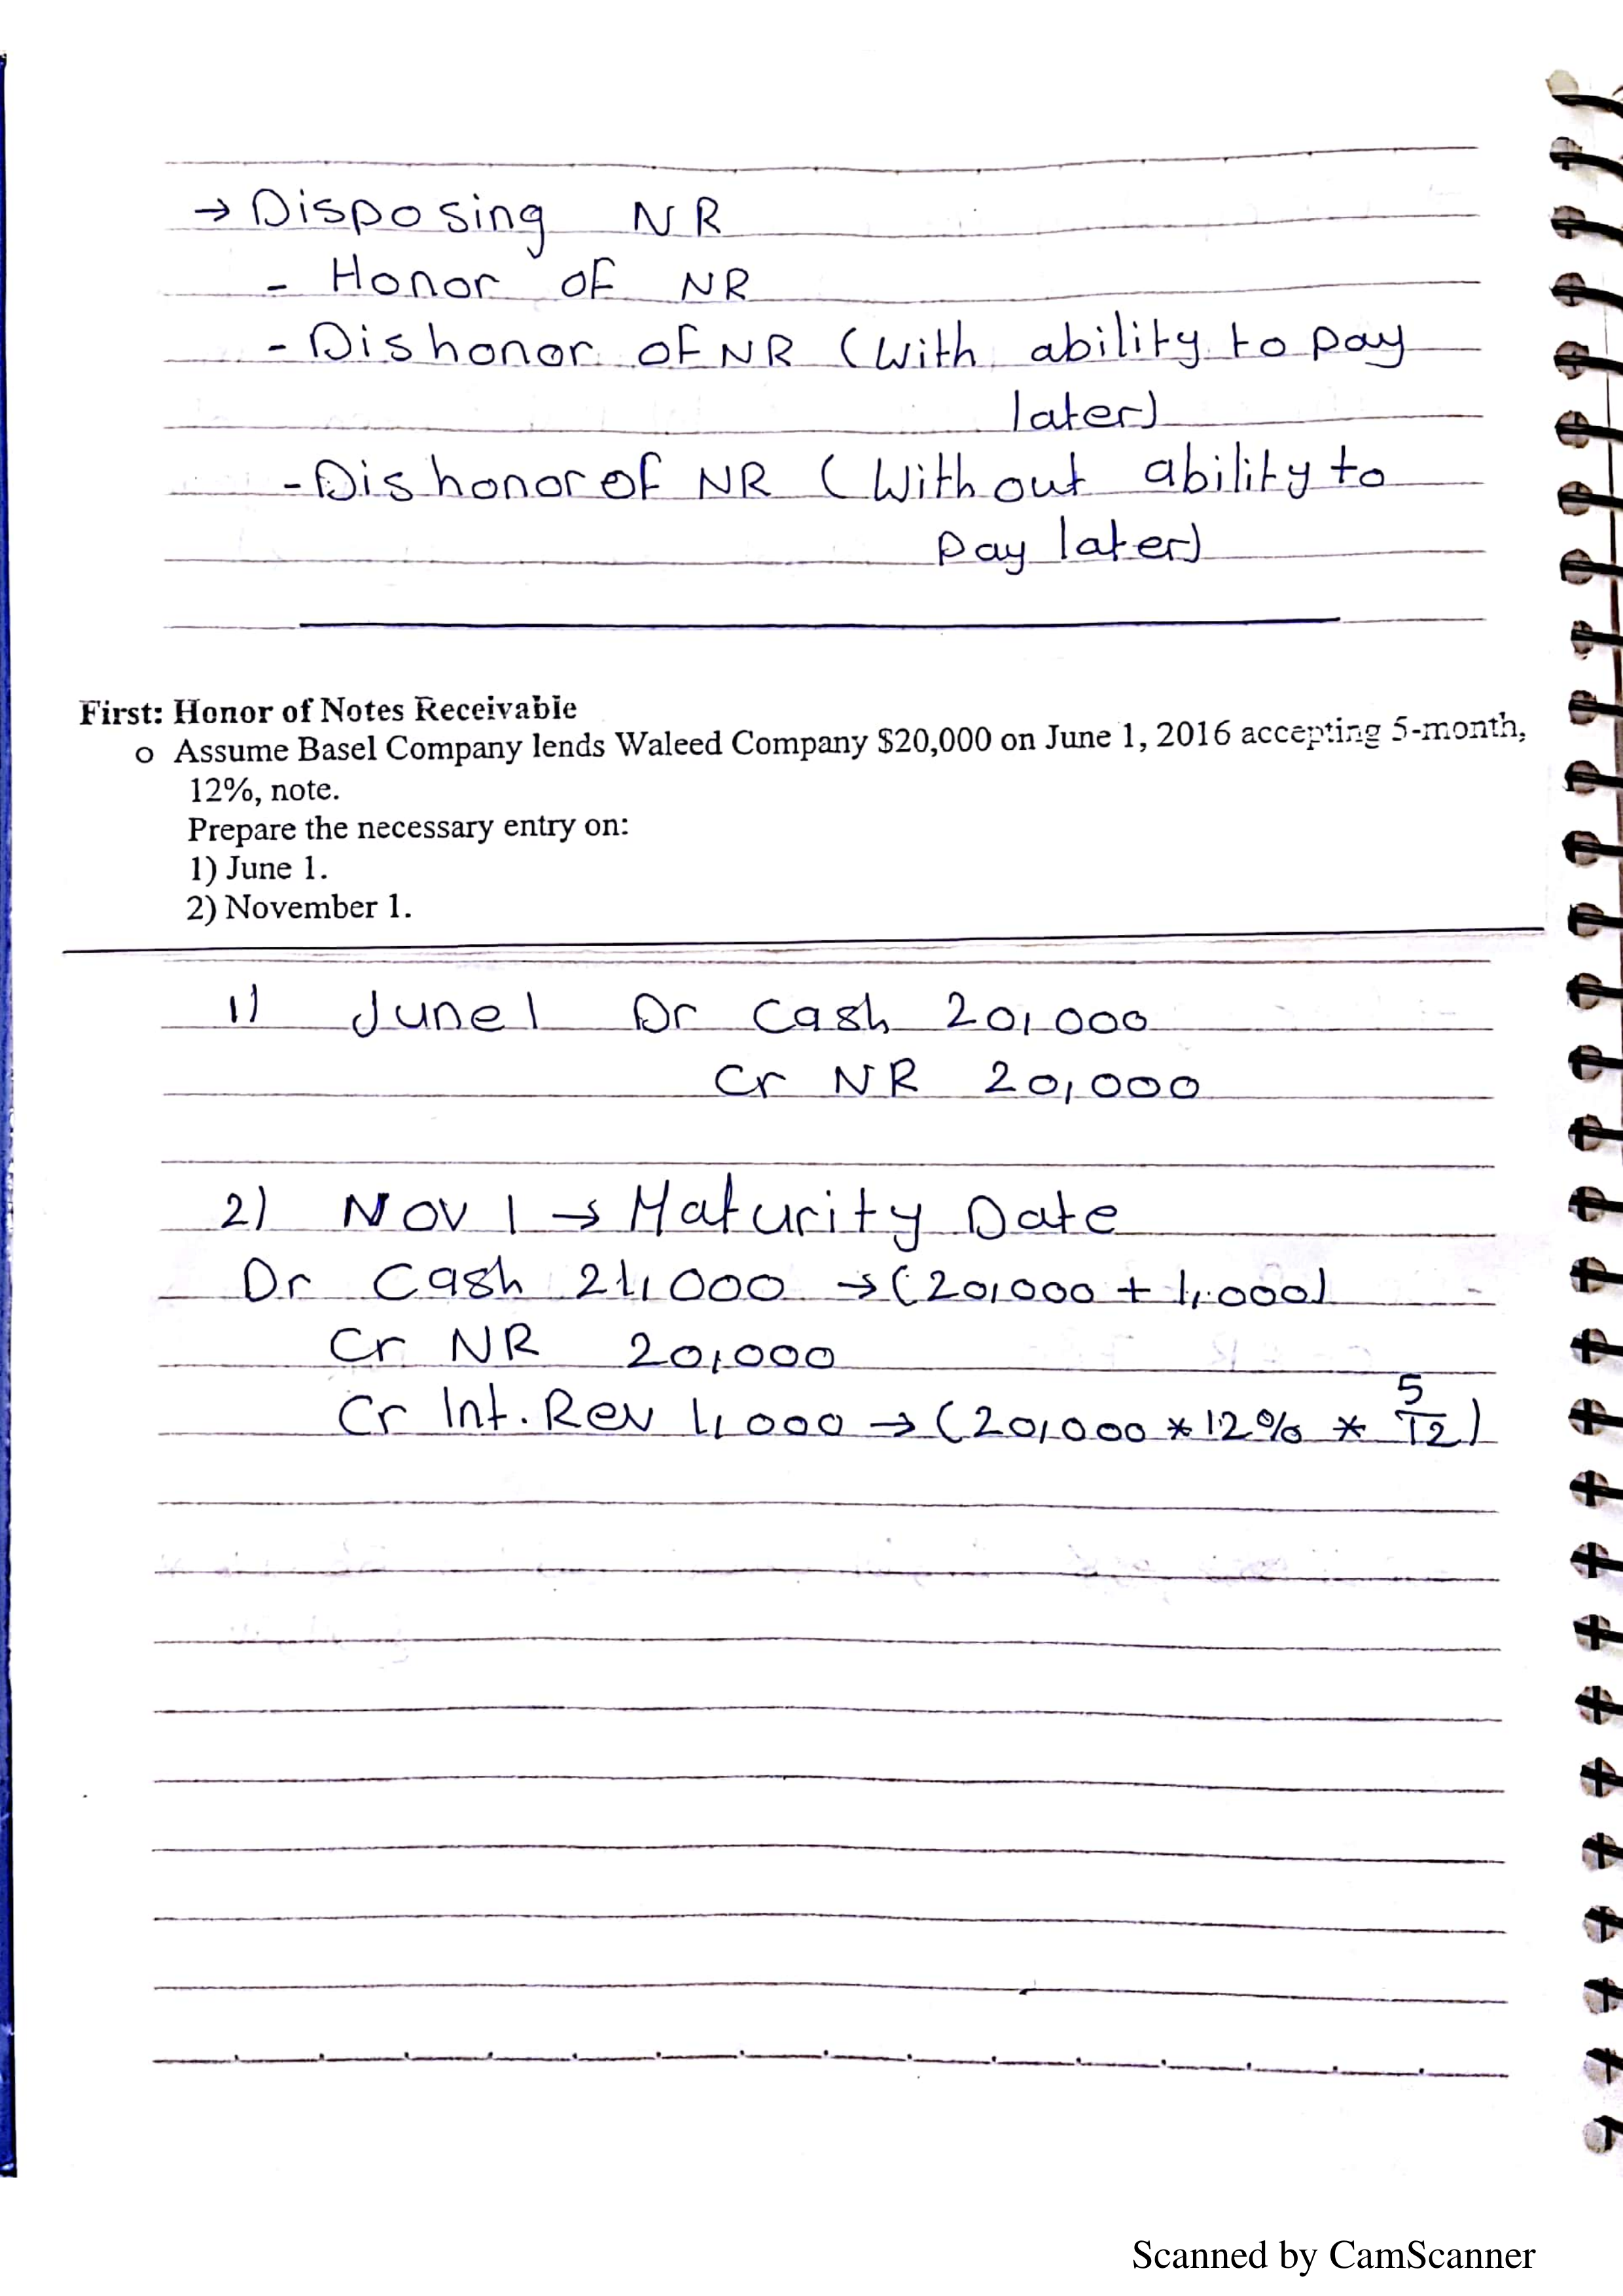 → Disposing NR
- Honor of NR
- Dishonor of NR (With ability to pay
later)
- Dishonor of NR (Without ability to
pay later)
First: Honor of Notes Receivable
o Assume Basel Company lends Waleed Company $20,000 on June 1, 2016 accepting 5-month,
12%, note.
Prepare the necessary entry on:
1) June 1.
2) November 1.
1) June 1 Dr Cash 20,000
Cr NR 20,000
2) Nov 1 → Maturity Date
Dr Cash 21,000 → (20,000 + 1,000)
Cr NR 20,000
Cr Int. Rev 1,000 → (20,000 * 12% * 5/12)
Scanned by CamScanner